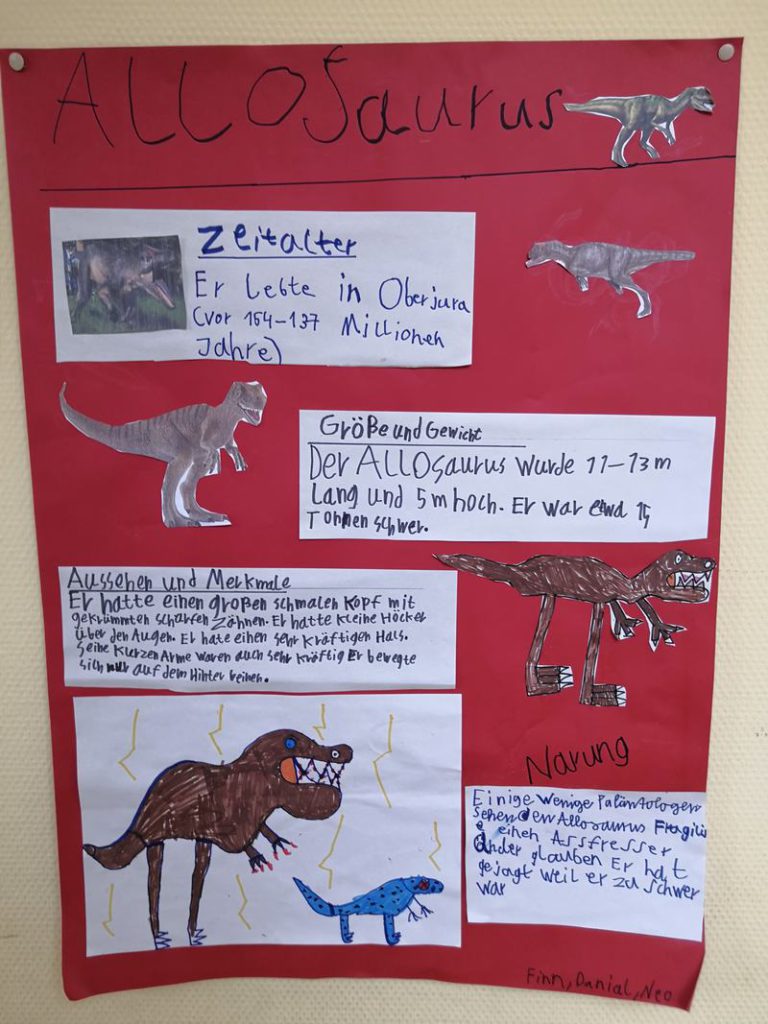 ALLOSaurus
Zeitalter
Er lebte in Oberjura
(vor 154-137 Millionen
Jahre)
Größe und Gewicht
Der ALLOSaurus wurde 11-13m
Lang und 5m hoch. Er war etwa
Tonnen schwer.
Aussehen und Merkmale
Er hatte einen großen schmalen Kopf mit
gekrümmten scharfen Zähnen. Er hatte kleine Höcker
über den Augen. Er hate einen sehr kräftigen Hals.
Seine Kurzen Arme waren auch sehr kräftig Er bewegte
sich nur auf dem Hinter beinen.
Narung
Einige wenige Paläntologen
sehen den Allosaurus Fragilis
einen Assfresser
Ander glauben Er hat
gejagt weil er zu schwer
war
Finn, Danial, Neo